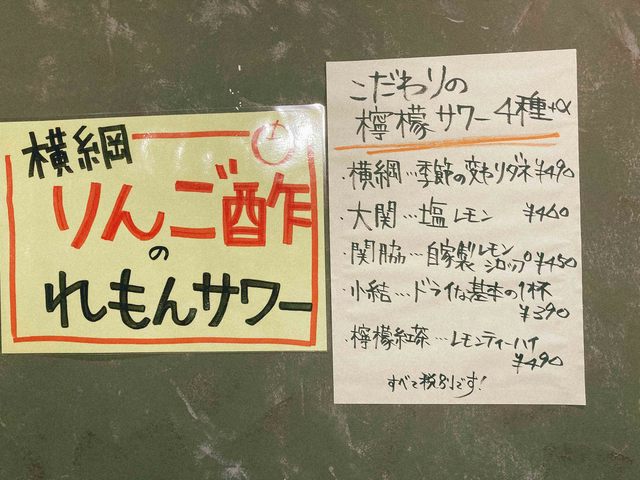 横綱
りんご酢
の
れもんサワー
こだわりの
檸檬サワー4種+α
横綱…季節の変わりダネ¥490
・大関…塩レモン ¥460
・関脇…自家製レモンシロップ¥450
・小結…ドライな基本の1杯
¥390
・檸檬紅茶…レモンティーハイ
¥490
すべて税別です!